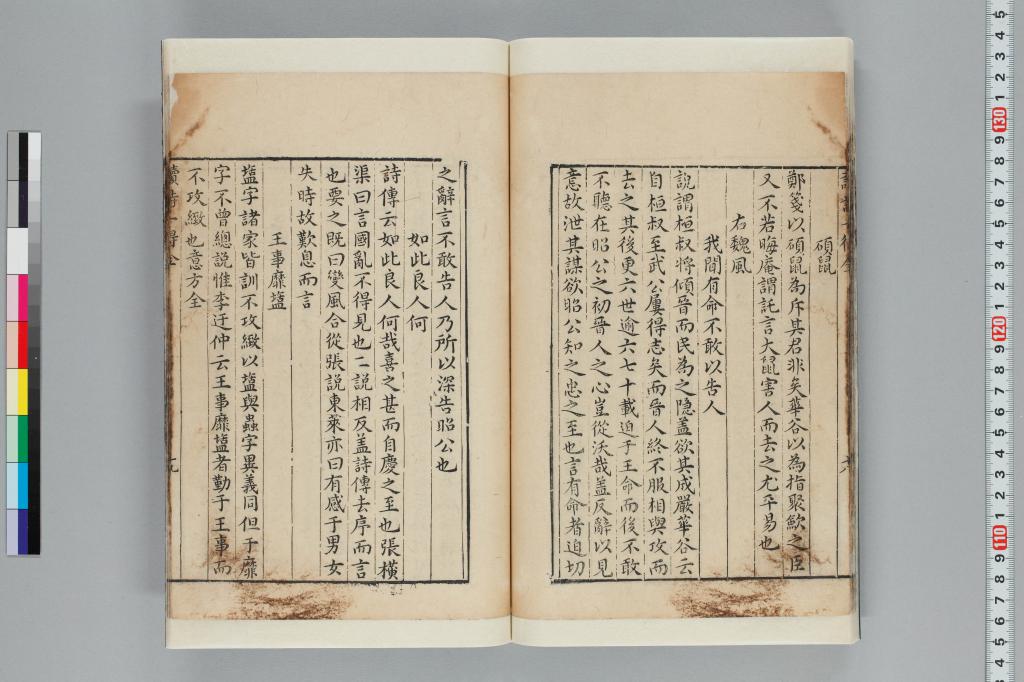 碩鼠
鄭箋以碩鼠為斥其君非矣華谷以為指聚歛之臣
又不若晦庵謂託言大鼠害人而去之尤平易也
右魏風
我聞有命不敢以告人
說謂桓叔將傾晉而民為之隠盖欲其成嚴華谷云
自桓叔至武公屢得志矣而晉人終不服相與攻而
去之其後更六世逾六七十載迫于王命而後不敢
不聽在昭公之初晉人之心豈從沃哉盖反辭以見
意故泄其謀欲昭公知之忠之至也言有命者迫切
之辭言不敢告人乃所以深告昭公也
如此良人何
詩傳云如此良人何哉喜之甚而自慶之至也張橫
渠曰言國亂不得見也二說相反盖詩傳去序而言
也要之既曰變風合從張說東萊亦曰有感于男女
失時故歎息而言
王事靡盬
盬字諸家皆訓不攻緻以盬與蠱字異義同但于靡
字不曾總説惟李迂仲云王事靡盬者勤于王事而
不攻緻也意方全
讀詩一得全
130
120
110